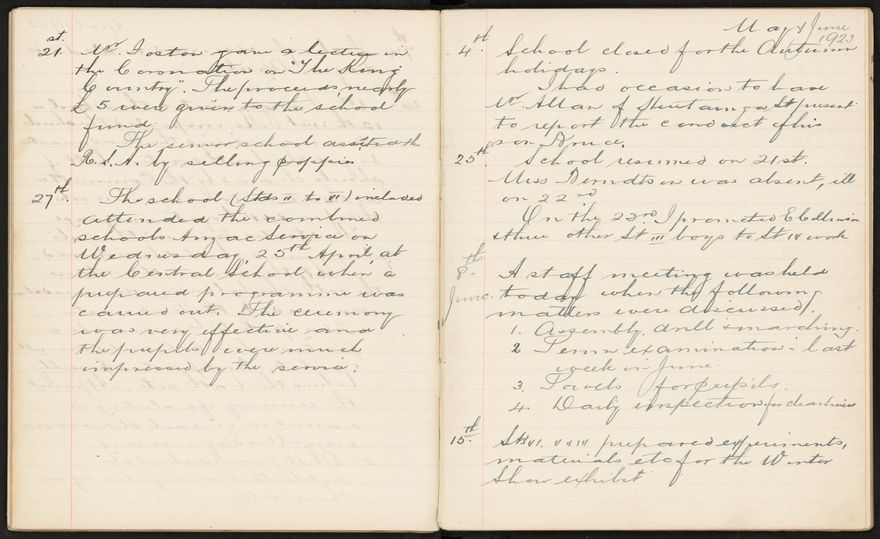 21st. Mr. Foston gave a lecture in
the Coronation on "The King
Country". The proceeds, nearly
£5 were given to the school
fund.
The senior school assisted the
R.S.A. by selling poppies
27th. The school (Stds II to VI) included
attended the combined
schools Anzac Service on
Wednesday, 25th April, at
the Central School when a
prepared programme was
carried out. The ceremony
was very effective and
the pupils were much
impressed by the service.
May & June
1923
4th. School closed for the Autumn
holidays.
I had occasion to have
Mr. Allan of St present
to report the conduct of his
son Bruce.
25th School resumed on 21st.
Miss Berndtson was absent, ill
on 22nd
On the 23rd I promoted E
& three other St III boys to St IV work
8th June. A staff meeting was held
today when the following
matters were discussed.
1. Assembly, drill & marching.
2 Term examination - last
week in June.
3. Towels for pupils.
4. Daily inspection for cleanliness
15th. Sts VI. V & IV prepared experiments,
materials etc for the Winter
Show exhibit